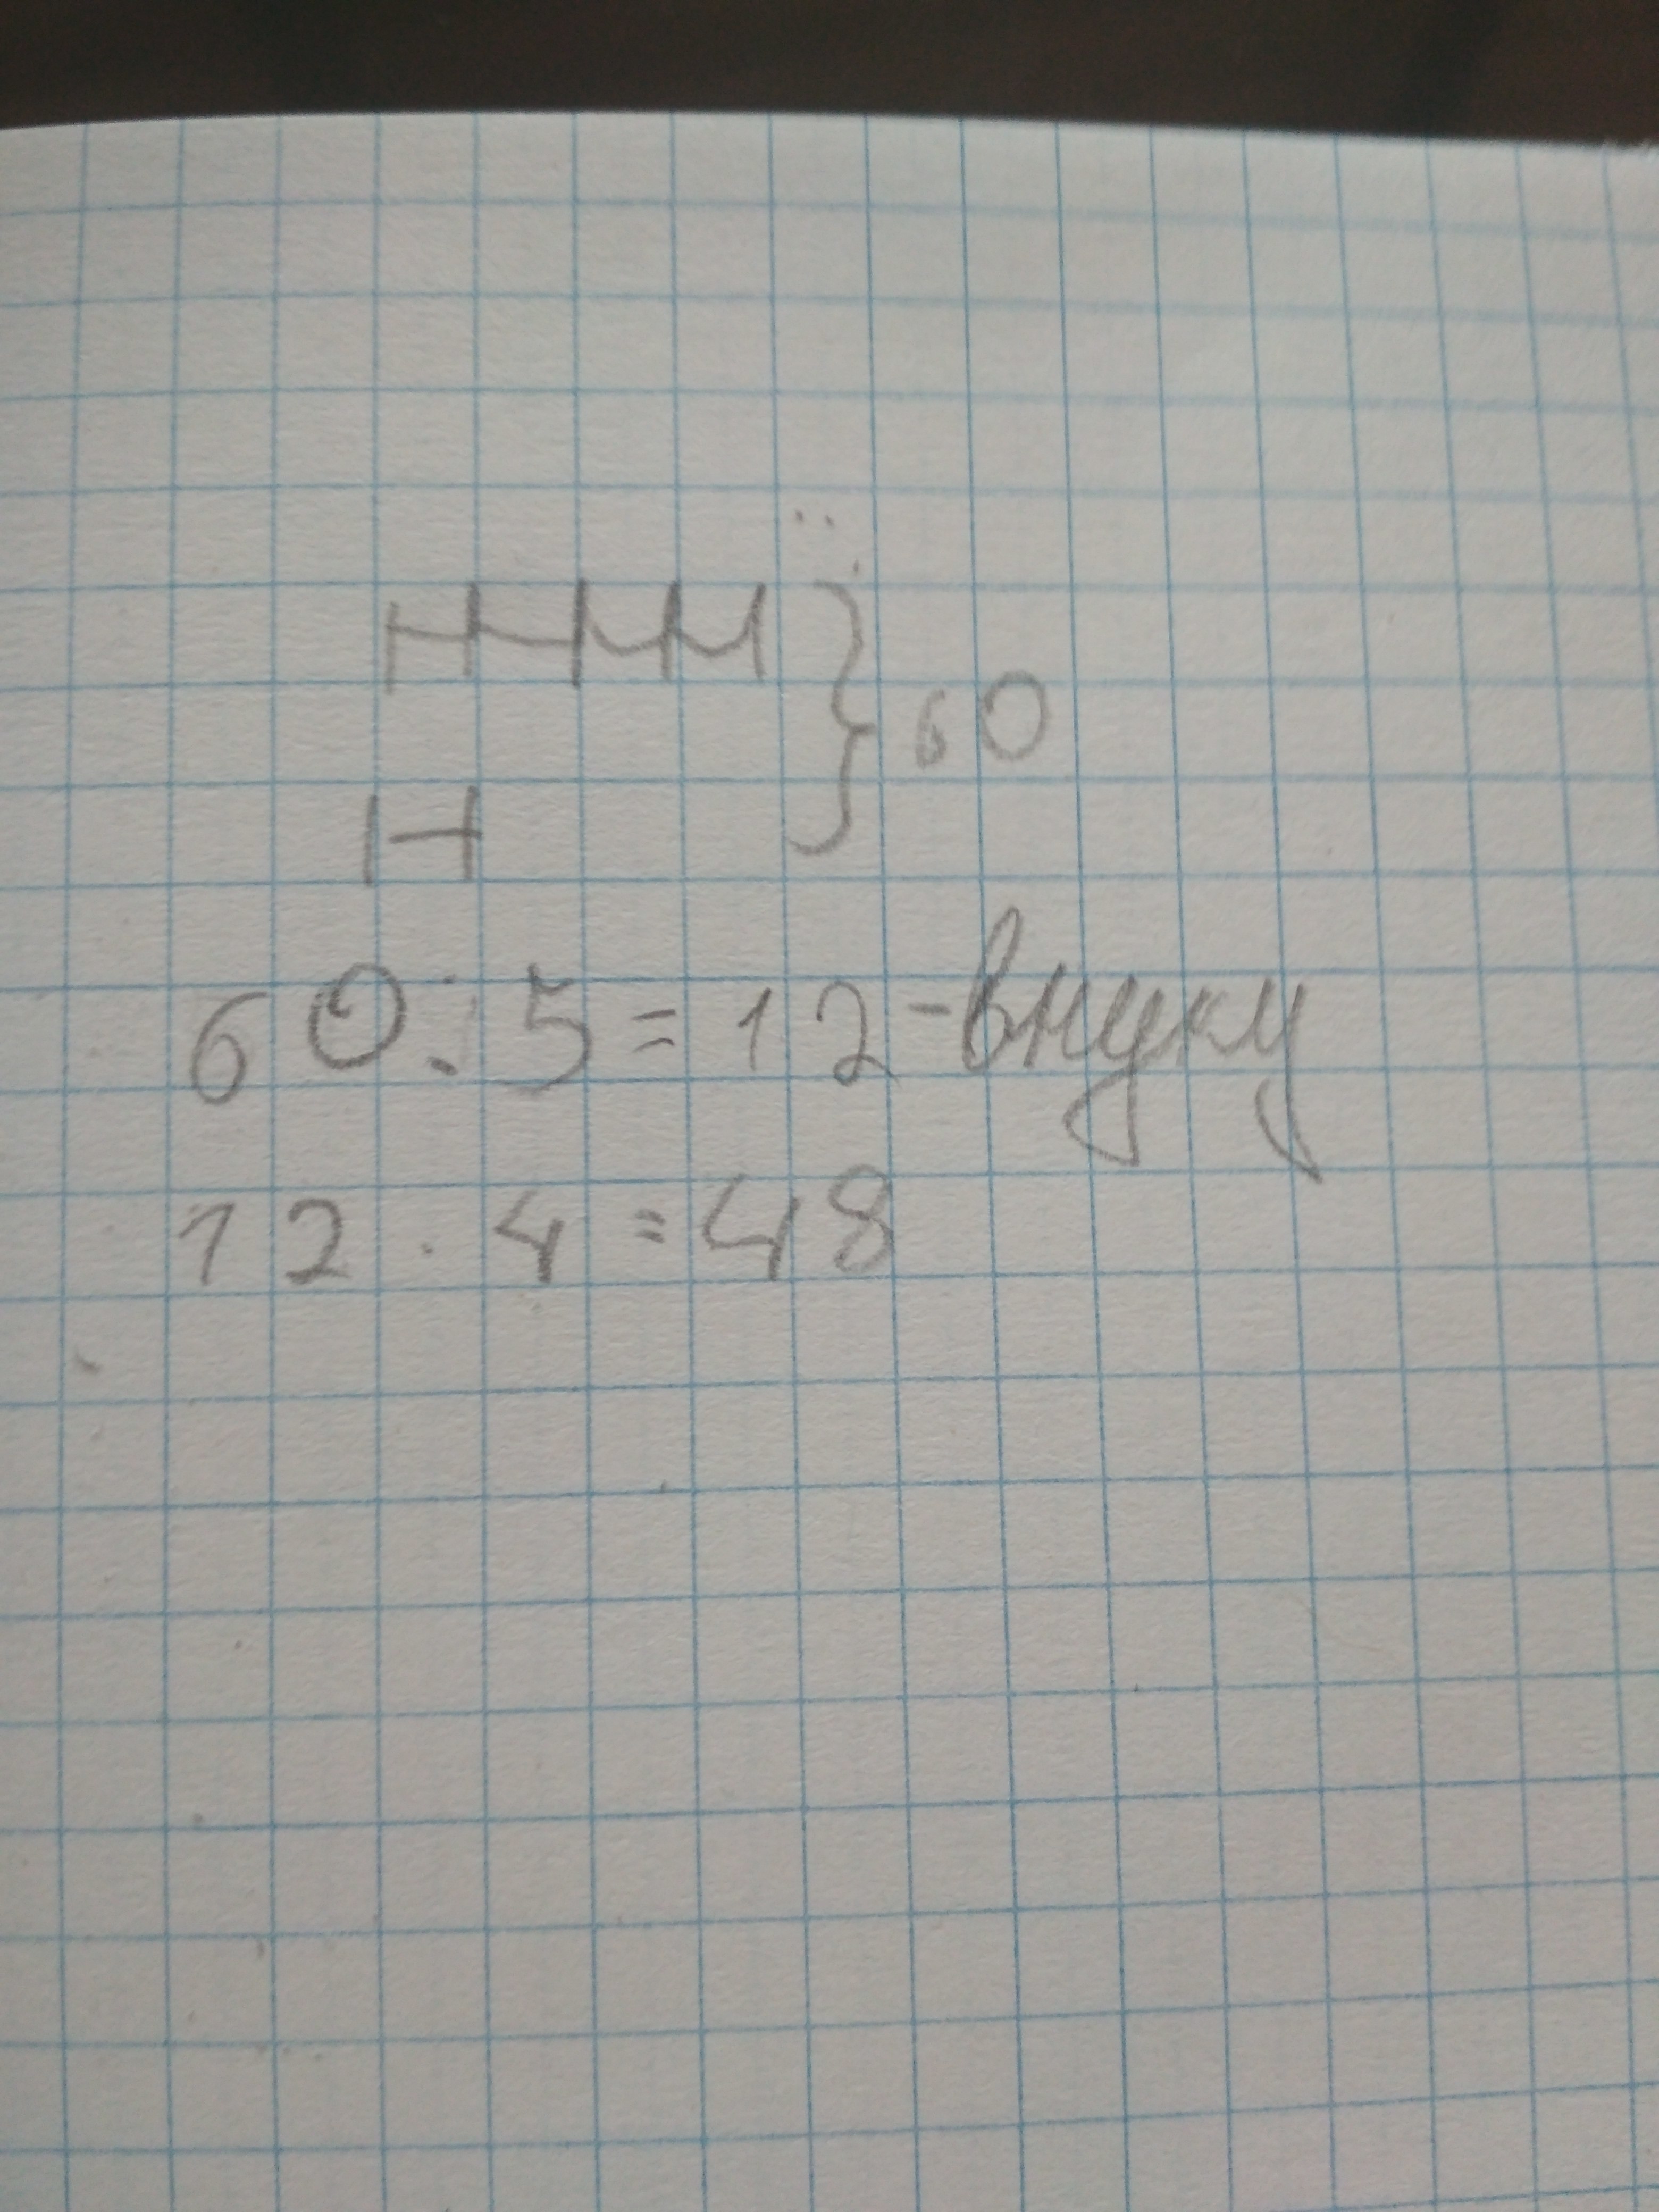 60
60:5=12-внуку
12·4=48